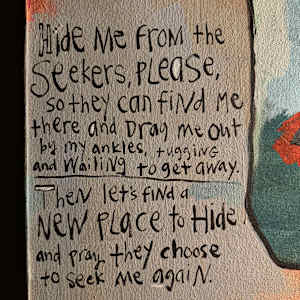 Hide Me From the
Seekers, Please,
so they can find me
there and Drag me out
by my ankles, tugging
and Wailing to get away.
Then let's find a
New Place to Hide
and pray they choose
to seek Me again.